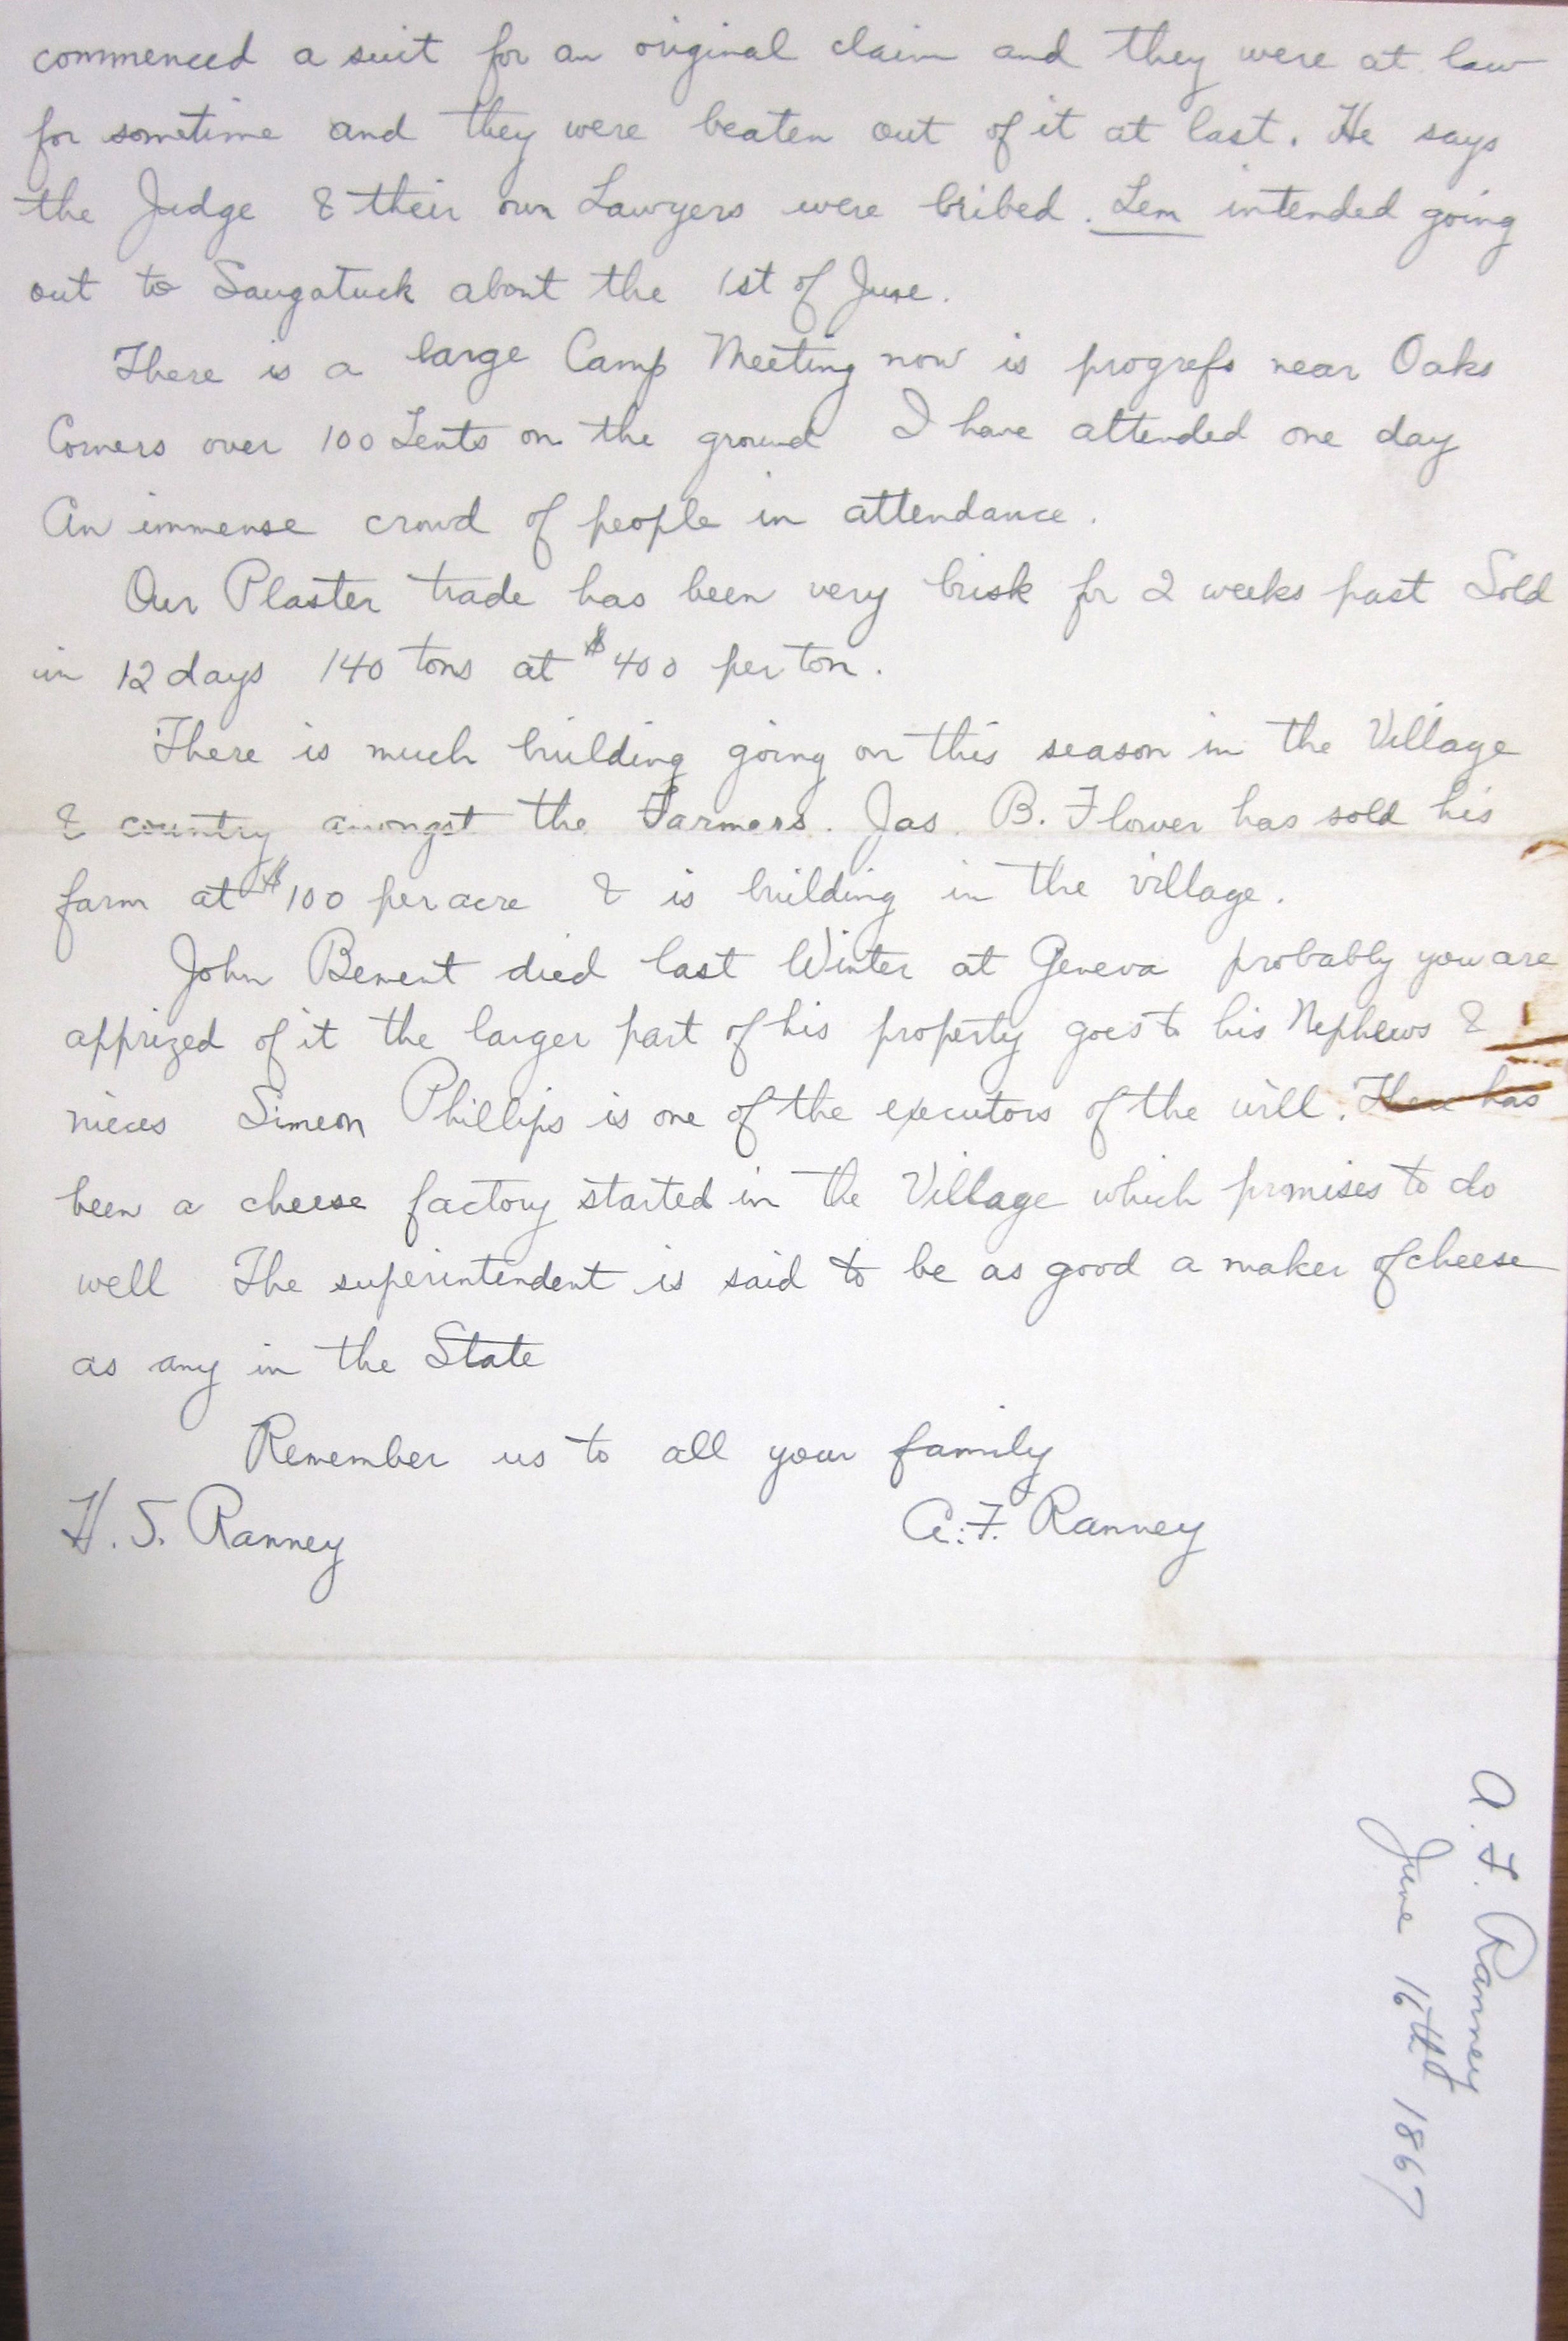 commenced a suit for an original claim and they were at law
for sometime and they were beaten out of it at last. He says
the Judge & their own Lawyers were bribed. Lem intended going
out to Saugatuck about the 1st of June.
There is a large Camp Meeting now is progress near Oaks
Corners over 100 Tents on the ground I have attended one day
An immense crowd of people in attendance.
Our Plaster trade has been very brisk for 2 weeks past Sold
in 12 days 140 tons at $400 per ton.
There is much building going on this season in the Village
& country amongst the Farmers. Jas. B. Flower has sold his
farm at $100 per acre & is building in the village.
John Bement died last Winter at Geneva probably you are
apprized of it the larger part of his property goes to his Nephews &
nieces Simeon Phillips is one of the executors of the will. There has
been a cheese factory started in the Village which promises to do
well The superintendent is said to be as good a maker of cheese
as any in the State
Remember us to all your family
H. S. Ranney A. F. Ranney
A. F. Ranney
June 16th 1867